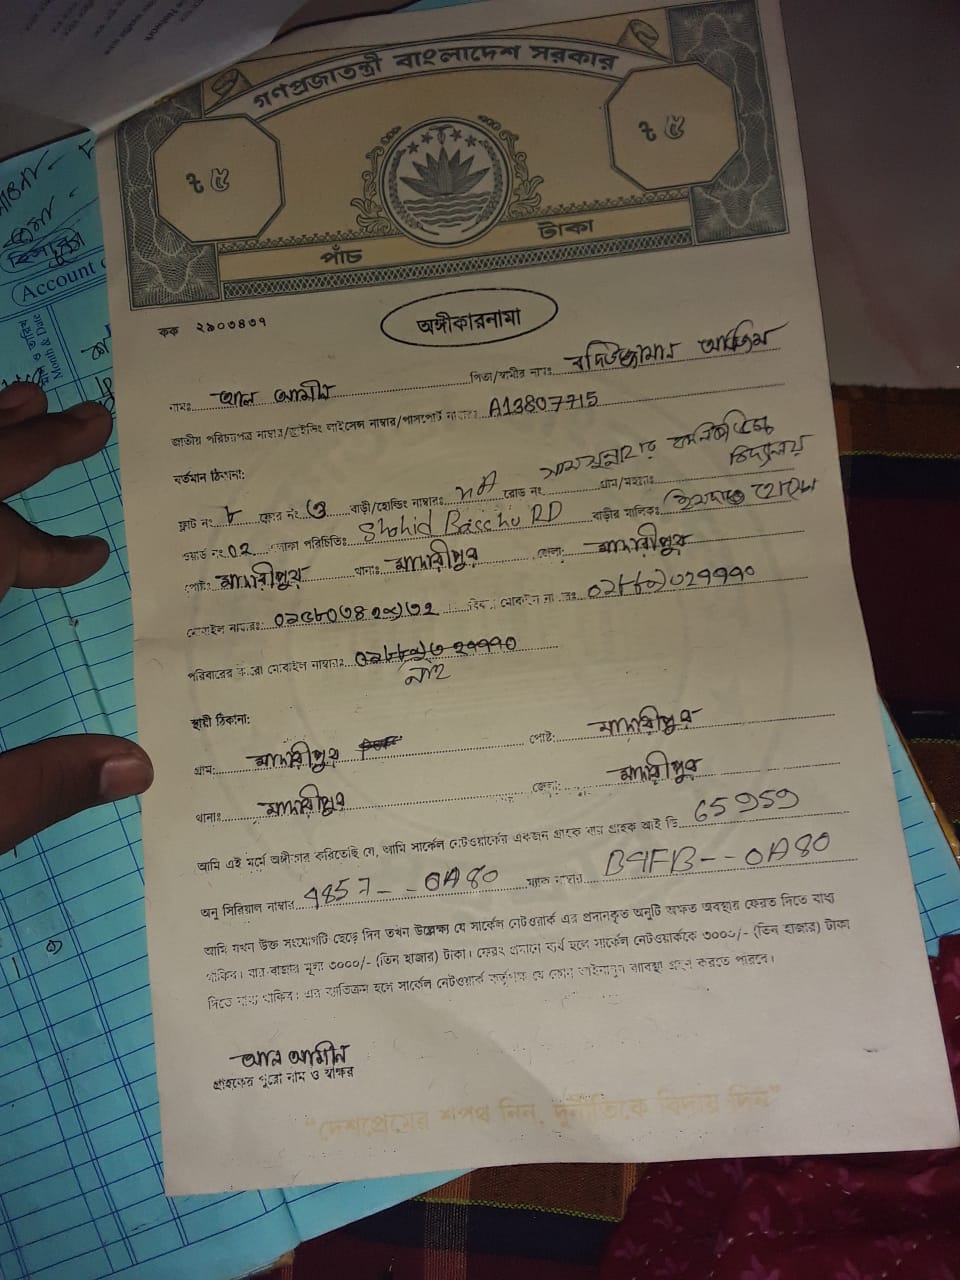 গণপ্রজাতন্ত্রী বাংলাদেশ সরকার
৳ ৫ ৳ ৫
পাঁচ টাকা
কক ২৯০৩৪৩৭
অঙ্গীকারনামা
নামঃ আল আমীন পিতা/স্বামীর নামঃ বদিউজ্জামান আজিম
জাতীয় পরিচয়পত্র নাম্বার/ড্রাইভিং লাইসেন্স নাম্বার/পাসপোর্ট নাম্বারঃ A13807715
বর্তমান ঠিকানা:
ফ্লাট নং ৮ ফ্লোর নং ৩ বাড়ী/হোল্ডিং নাম্বারঃ NA রোড নং গ্রাম/মহল্লাঃ বিদ্যালয়
ওয়ার্ড নং 02 এলাকা পরিচিতিঃ Shohid Bacchu RD বাড়ীর মালিকঃ
পোষ্টঃ মাদারীপুর থানাঃ মাদারীপুর জেলা: মাদারীপুর
মোবাইল নাম্বারঃ
পরিবারের কারো মোবাইল নাম্বারঃ
নাই
স্থায়ী ঠিকানা:
গ্রাম: মাদারীপুর পোষ্ট: মাদারীপুর
থানাঃ মাদারীপুর জেলা: মাদারীপুর
আমি এই মর্মে অঙ্গীকার করিতেছি যে, আমি সার্কেল নেটওয়ার্কের একজন গ্রাহক যার গ্রাহক আই ডি 65959
অনু সিরিয়াল নাম্বার 4857--0A80 ম্যাক নাম্বার B4FB--0A80
আমি যখন উক্ত সংযোগটি ছেড়ে দিব তখন উল্লেক্ষ্য যে সার্কেল নেটওয়ার্ক এর প্রদানকৃত অনুটি অক্ষত অবস্থায় ফেরত দিতে বাধ্য
থাকিব। যার বাজার মূল্য ৩০০০/- (তিন হাজার) টাকা। ফেরৎ প্রদানে ব্যর্থ হলে সার্কেল নেটওয়ার্ককে ৩০০০/- (তিন হাজার) টাকা
দিতে বাধ্য থাকিব। এর ব্যতিক্রম হলে সার্কেল নেটওয়ার্ক কর্তৃপক্ষ যে কোন আইনানুগ ব্যবস্থা গ্রহন করতে পারবে।
আল আমীন
গ্রাহকের পুরো নাম ও স্বাক্ষর
"দেশপ্রেমের শপথ নিন, দুর্নীতিকে বিদায় দিন"
Account
Month & Date